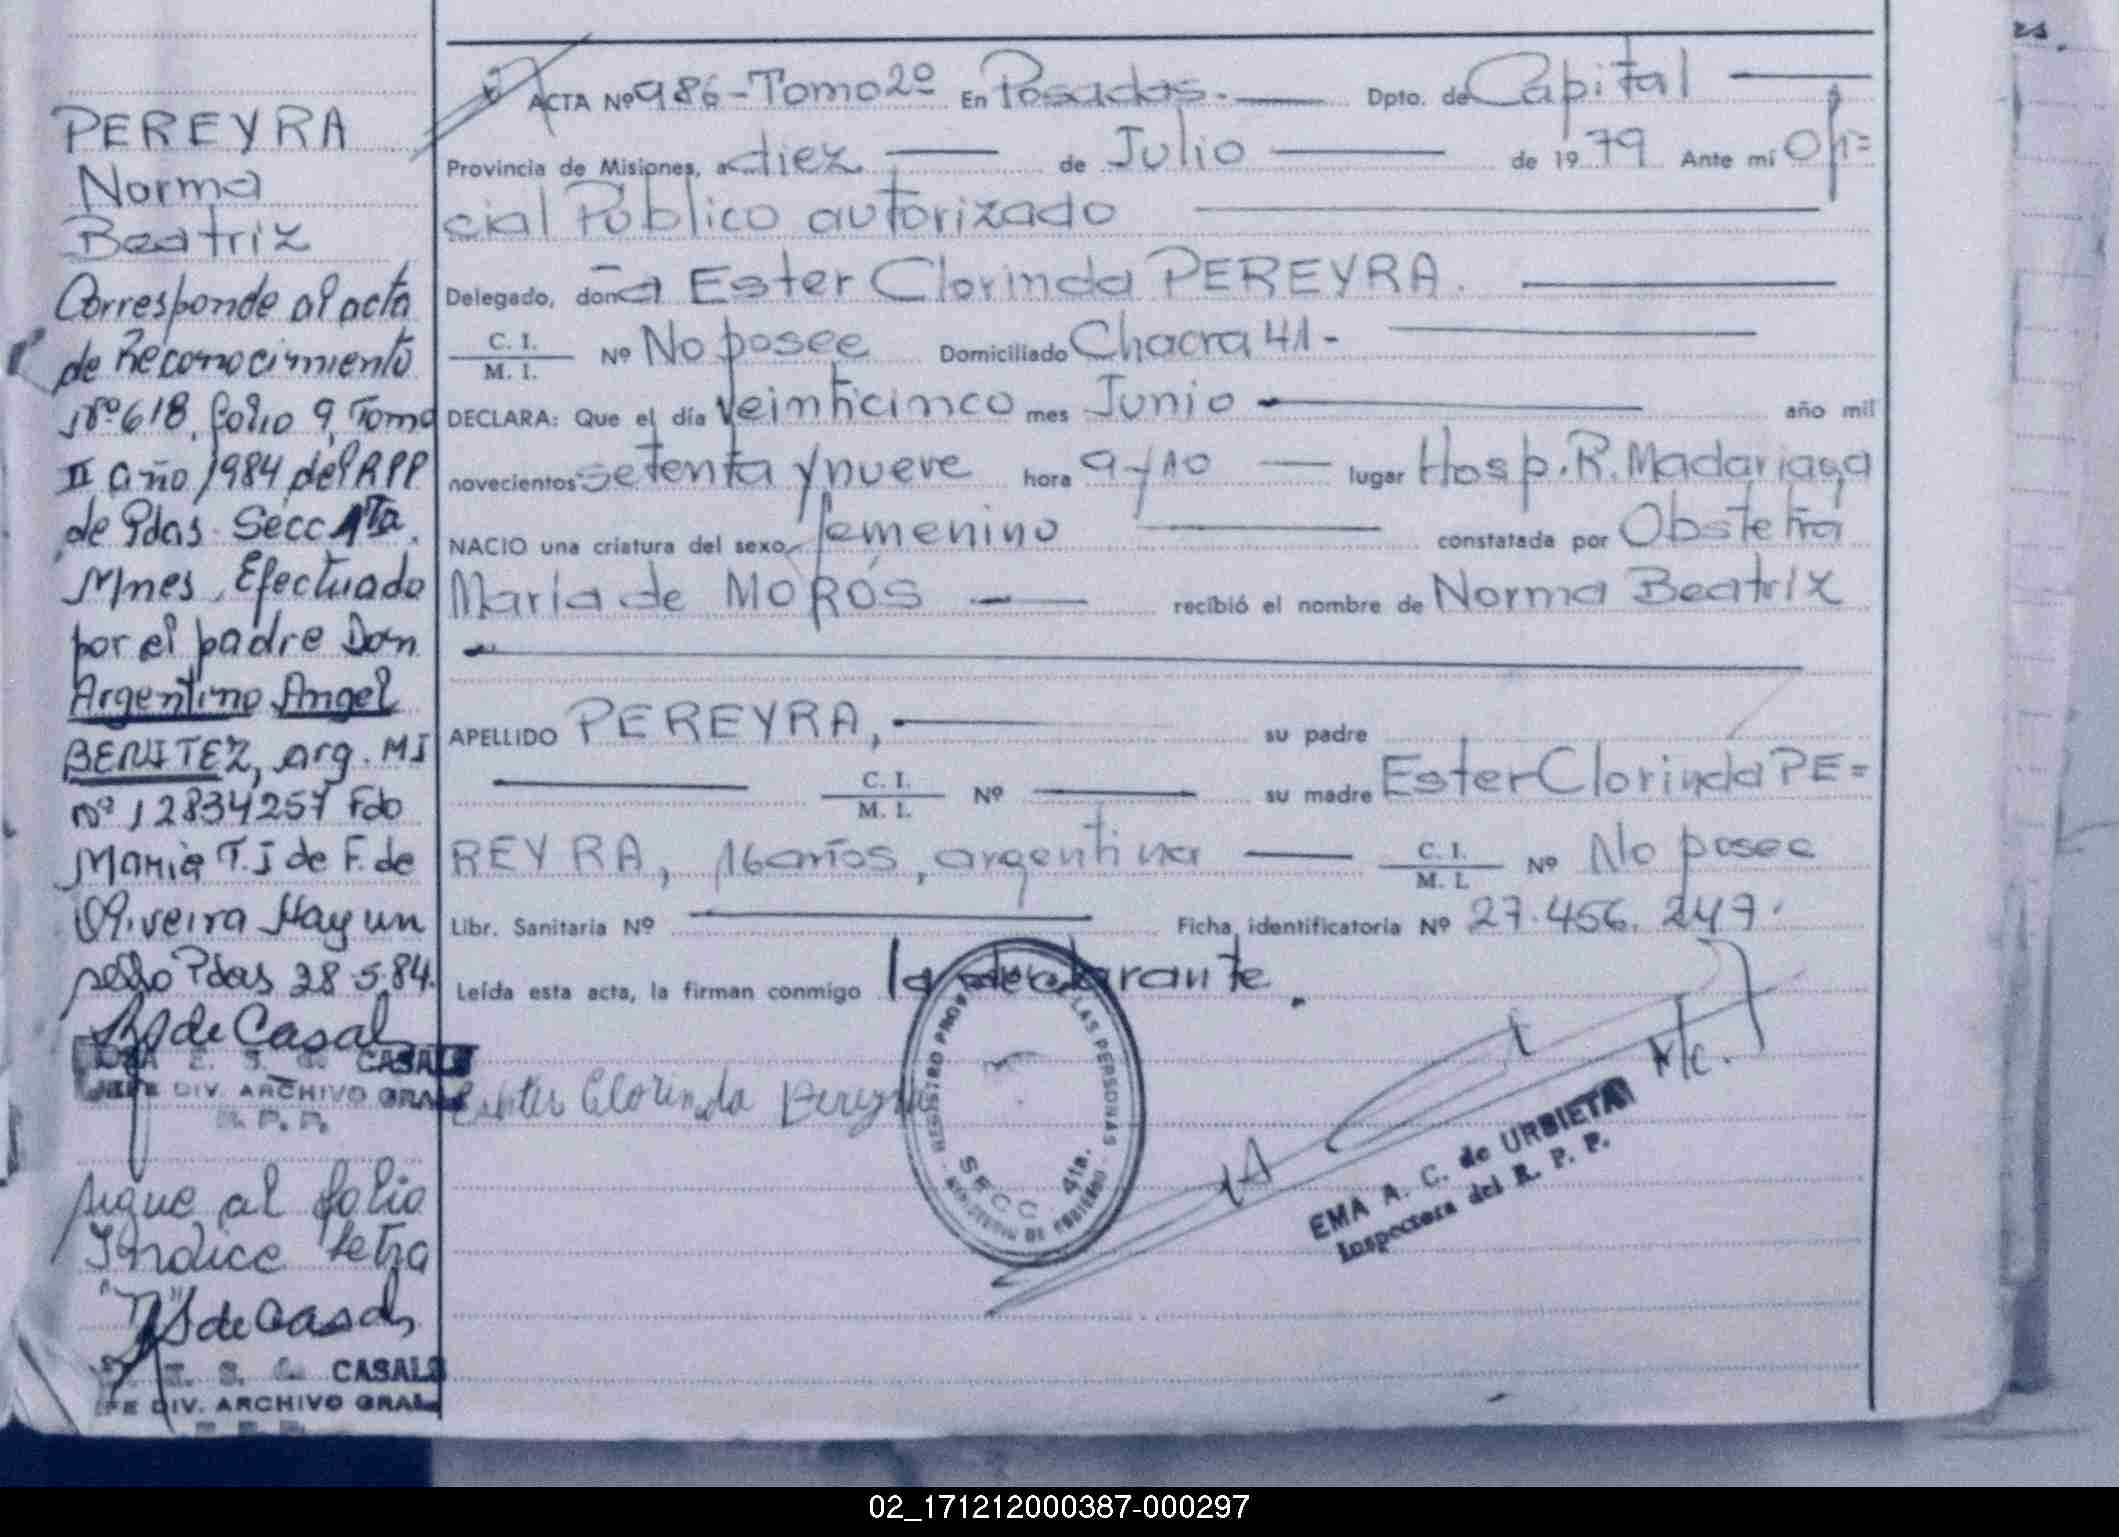 PEREYRA
Norma
Beatriz
Corresponde al acta
de Reconocimiento
Nº 618, folio 9, Tomo
II año 1984 del RPP
de Pdas. Secc 1ra.
Mnes. Efectuado
por el padre Don
Argentino Angel
BENITEZ, arg. MI
Nº 12834257 Fdo
Maria T. J de F. de
Oliveira Hay un
sello Pdas 28.5.84.
de Casal
E. S. de CASALS
JEFE DIV. ARCHIVO GRAL
R. P. P.
sigue al folio
Indice letra
de Casal
E. S. de CASALS
JEFE DIV. ARCHIVO GRAL
ACTA Nº 986-Tomo 2º En Posadas. Dpto. de Capital
Provincia de Misiones, a diez de Julio de 1979 Ante mí Ofi=
cial Público autorizado
Delegado, doña Ester Clorinda PEREYRA.
C. I.
M. I. Nº No posee Domiciliado Chacra 41-
DECLARA: Que el día veinticinco mes Junio año mil
novecientos setenta y nueve hora 9 y 10 lugar Hosp. R. Madariaga
NACIO una criatura del sexo femenino constatada por Obstetra
María de MOROS recibió el nombre de Norma Beatriz
APELLIDO PEREYRA, su padre
C. I.
M. I. Nº su madre Ester Clorinda PE=
REYRA, 16 años, argentina C. I.
M. I. Nº No posee
Libr. Sanitaria Nº Ficha identificatoria Nº 27.456.247.
Leída esta acta, la firman conmigo la declarante.
Ester Clorinda Pereyra
REGISTRO PROV. DE LAS PERSONAS
SECC 4ta.
M/c.
EMA A. C. de URBIETA
Inspectora del R. P. P.
02_171212000387-000297